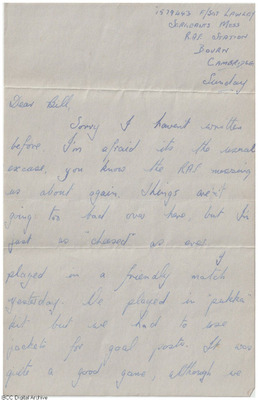 1579243 F/Sgt Lawery
Sergeants Mess
RAF Station
Bourn
Cambridge
Sunday
Dear Bill
Sorry I haven't written
before. I'm afraid its the usual
excuse, you know the RAF messing
us about again. Things aren't
going too bad over here, but I'm
just as "cheesed" as ever.
I
played in a friendly match
yesterday. We played in "pukka"
kit but we had to use
jackets for goal posts. It was
quite a good game, although we
IBCC Digital Archive